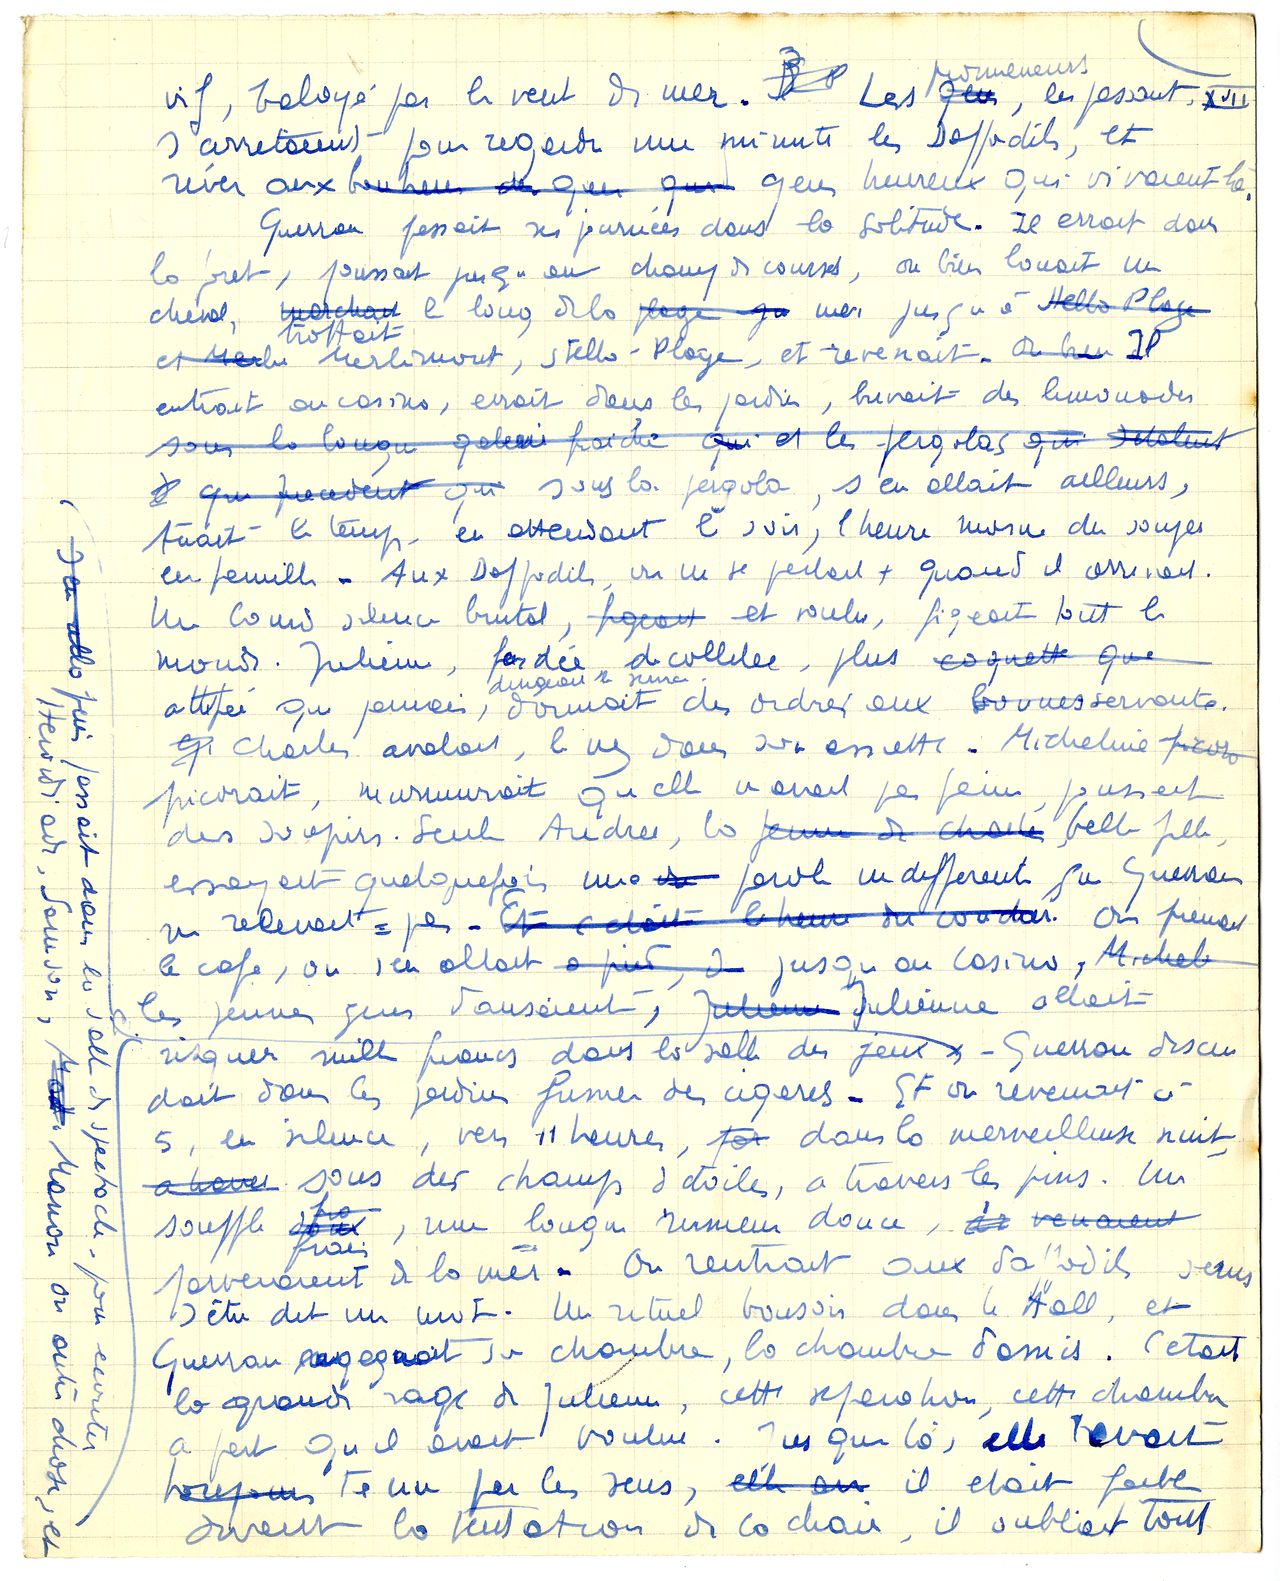 promeneurs
vif, balayé par le vent de mer. Les gens, les passants, XVII
s'arretaient pour regarder une minute les Daffodils, et
rêver aux bonheur des gens qui gens heureux qui vivaient là.
Guerran passait ses journées dans la solitude. Il errait dans
la foret, poussait jusqu'au champ de courses, ou bien louait un
cheval, marchait le long de la plage qu mer jusqu'à Stella Plage
trottait
et Merlu Merlimont, Stella-Plage, et revenait. Ou bien Il
entrait au casino, errait dans les jardins, buvait des limonades
sous la longue galerie fraiche qui et les pergolas qui
qui sous la pergola, s'en allait ailleurs,
tuait le temps, en attendant le soir, l'heure morne du souper
en famille. Aux Daffodils, on ne se parlait + quand il arrivait.
Un lourd silence brutal, figeant et voulu, figeait tout le
monde. Julienne, fardée, decolletée, plus coquette que
dirigeait le service
attifée que jamais, donnait des ordres aux bonnes servantes.
Charles avalait, le nez dans son assiette. Micheline picoro
picorait, murmurait qu'elle n'avait pas faim, poussait
des soupirs. Seule Andrée, la femme de Charles, belle fille,
essayait quelquefois une parole indifferente que Guerran
ne relevait pas. Et c'était l'heure du coucher. On prenait
le café, on s'en allait a pied, jusqu'au Casino, Michel
les jeunes gens dansaient, Julienne Julienne allait
risquer mille francs dans la salle des jeux x - Guerran descen
dait dans les jardins fumer des cigares. Et on revenait à
5, en silence, vers 11 heures, dans la merveilleuse nuit,
sous des champs d'étoiles, a travers les pins. Un
souffle doux, une longue rumeur douce, venaient
frais
parvenaient de la mer. On rentrait aux Daffodils sans
s'être dit un mot. Un rituel bonsoir dans le Hall, et
Guerran regagnait sa chambre, la chambre d'amis. C'était
la grande rage de Julienne, cette separation, cette chambre
a part qu'il avait voulue. Jusque là, elle l'avait
toujours tenu par les sens, il etait faible
devant la tentation de la chair, il oubliait tout
puis passait dans la salle de spectacle, pour ecouter
Herodiade, Samson, Manon ou autre chose, et